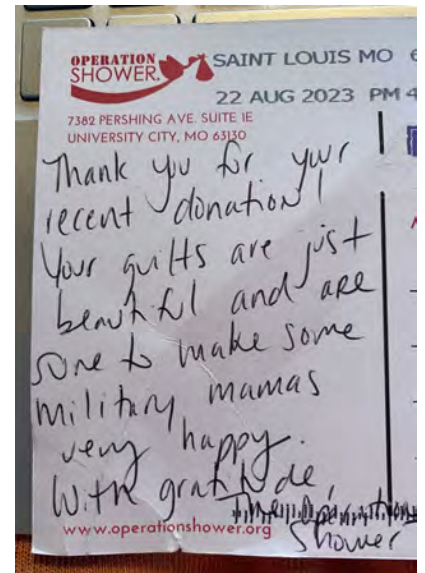 OPERATION
SHOWER.
SAINT LOUIS MO 6
22 AUG 2023 PM 4
7382 PERSHING AVE. SUITE IE
UNIVERSITY CITY, MO 63130
Thank you for your
recent donation!
Your quilts are just
beautiful and are
sure to make some
military mamas
very happy.
With gratitude,
The Operation
Shower
www.operationshower.org